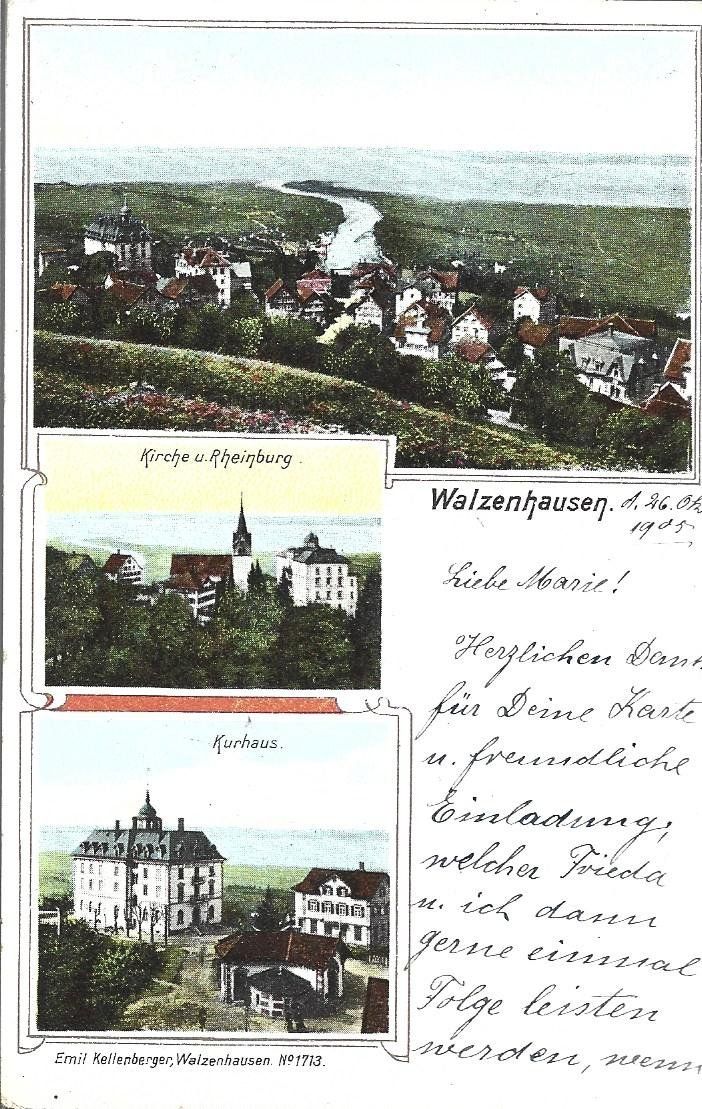 Kirche u. Rheinburg.
Walzenhausen. d. 26. Okt
1905
Liebe Marie!
Herzlichen Dank
für Deine Karte
u. freundliche
Einladung,
welcher Frieda
u. ich dann
gerne einmal
Folge leisten
werden, wenn
Kurhaus.
Emil Kellenberger, Walzenhausen. No 1713.